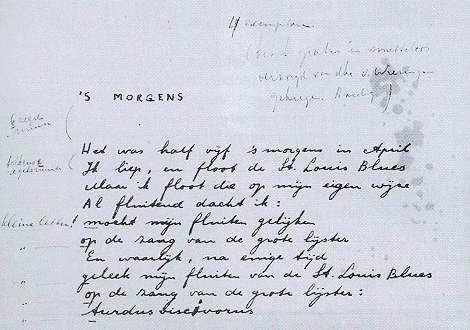 4 exemplaren.
gratis en
verzorgd van dhr. v.
'S MORGENS
Het was half vijf 's morgens in April
Ik liep, en floot de St. Louis Blues
Maar ik floot die op mijn eigen wijze
Al fluitend dacht ik:
kleine letter! mocht mijn fluiten gelijken
" op de zang van de grote lijster
En waarlijk, na enige tijd
" geleek mijn fluiten van de St. Louis Blues
" op de zang van de grote lijster:
" turdus viscivorus